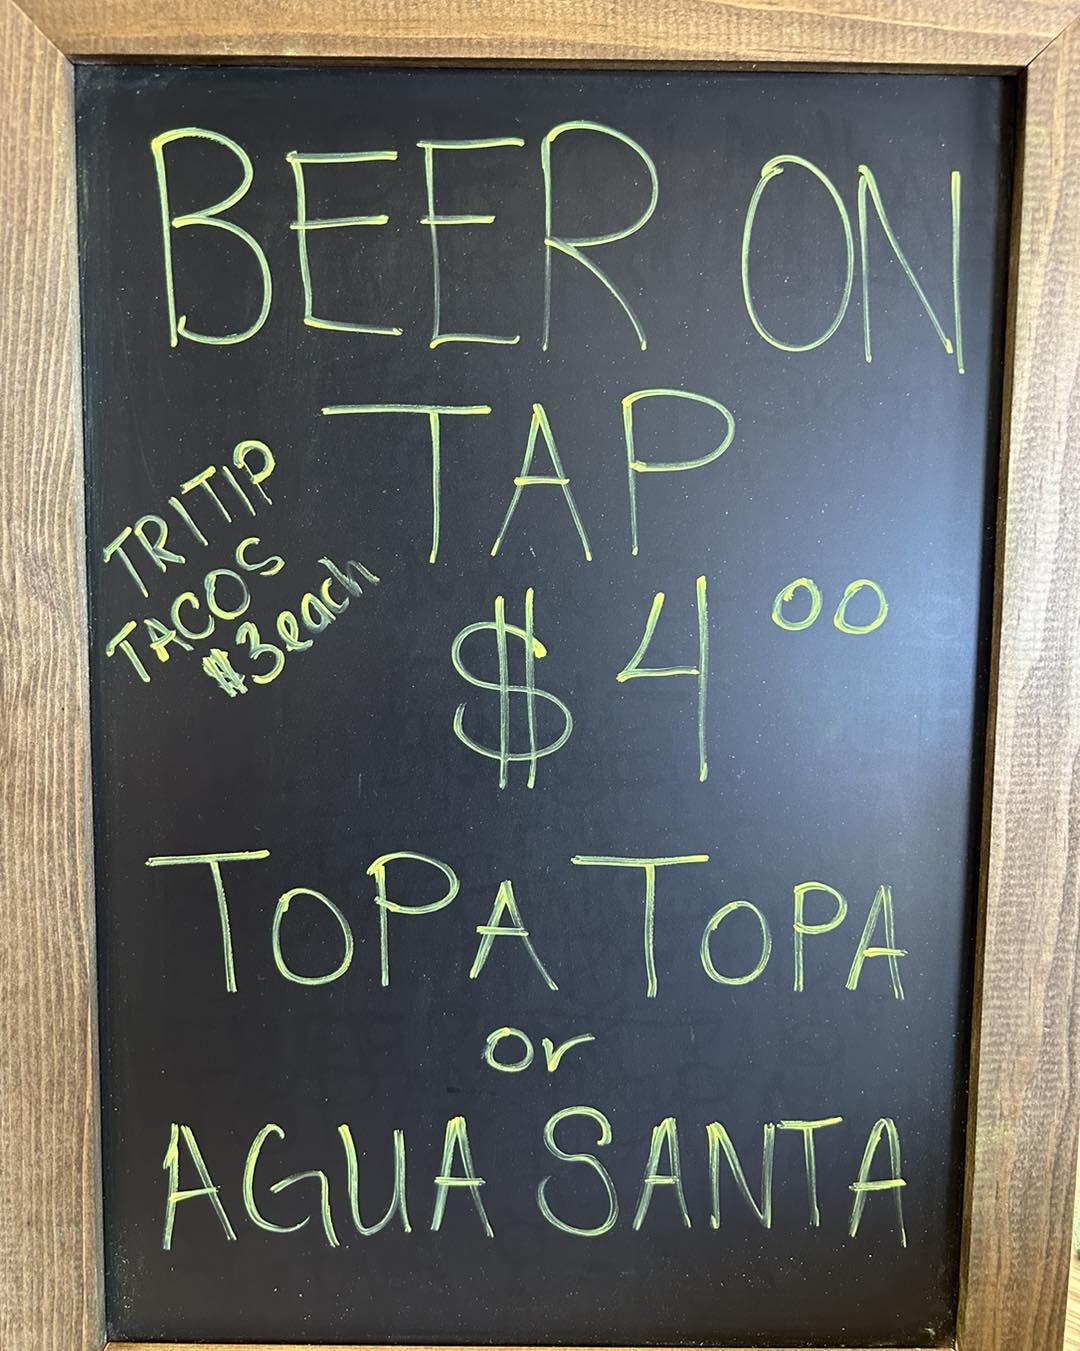 BEER ON
TAP
TRITIP
TACOS
$3 each
$4.00
TOPA TOPA
or
AGUA SANTA